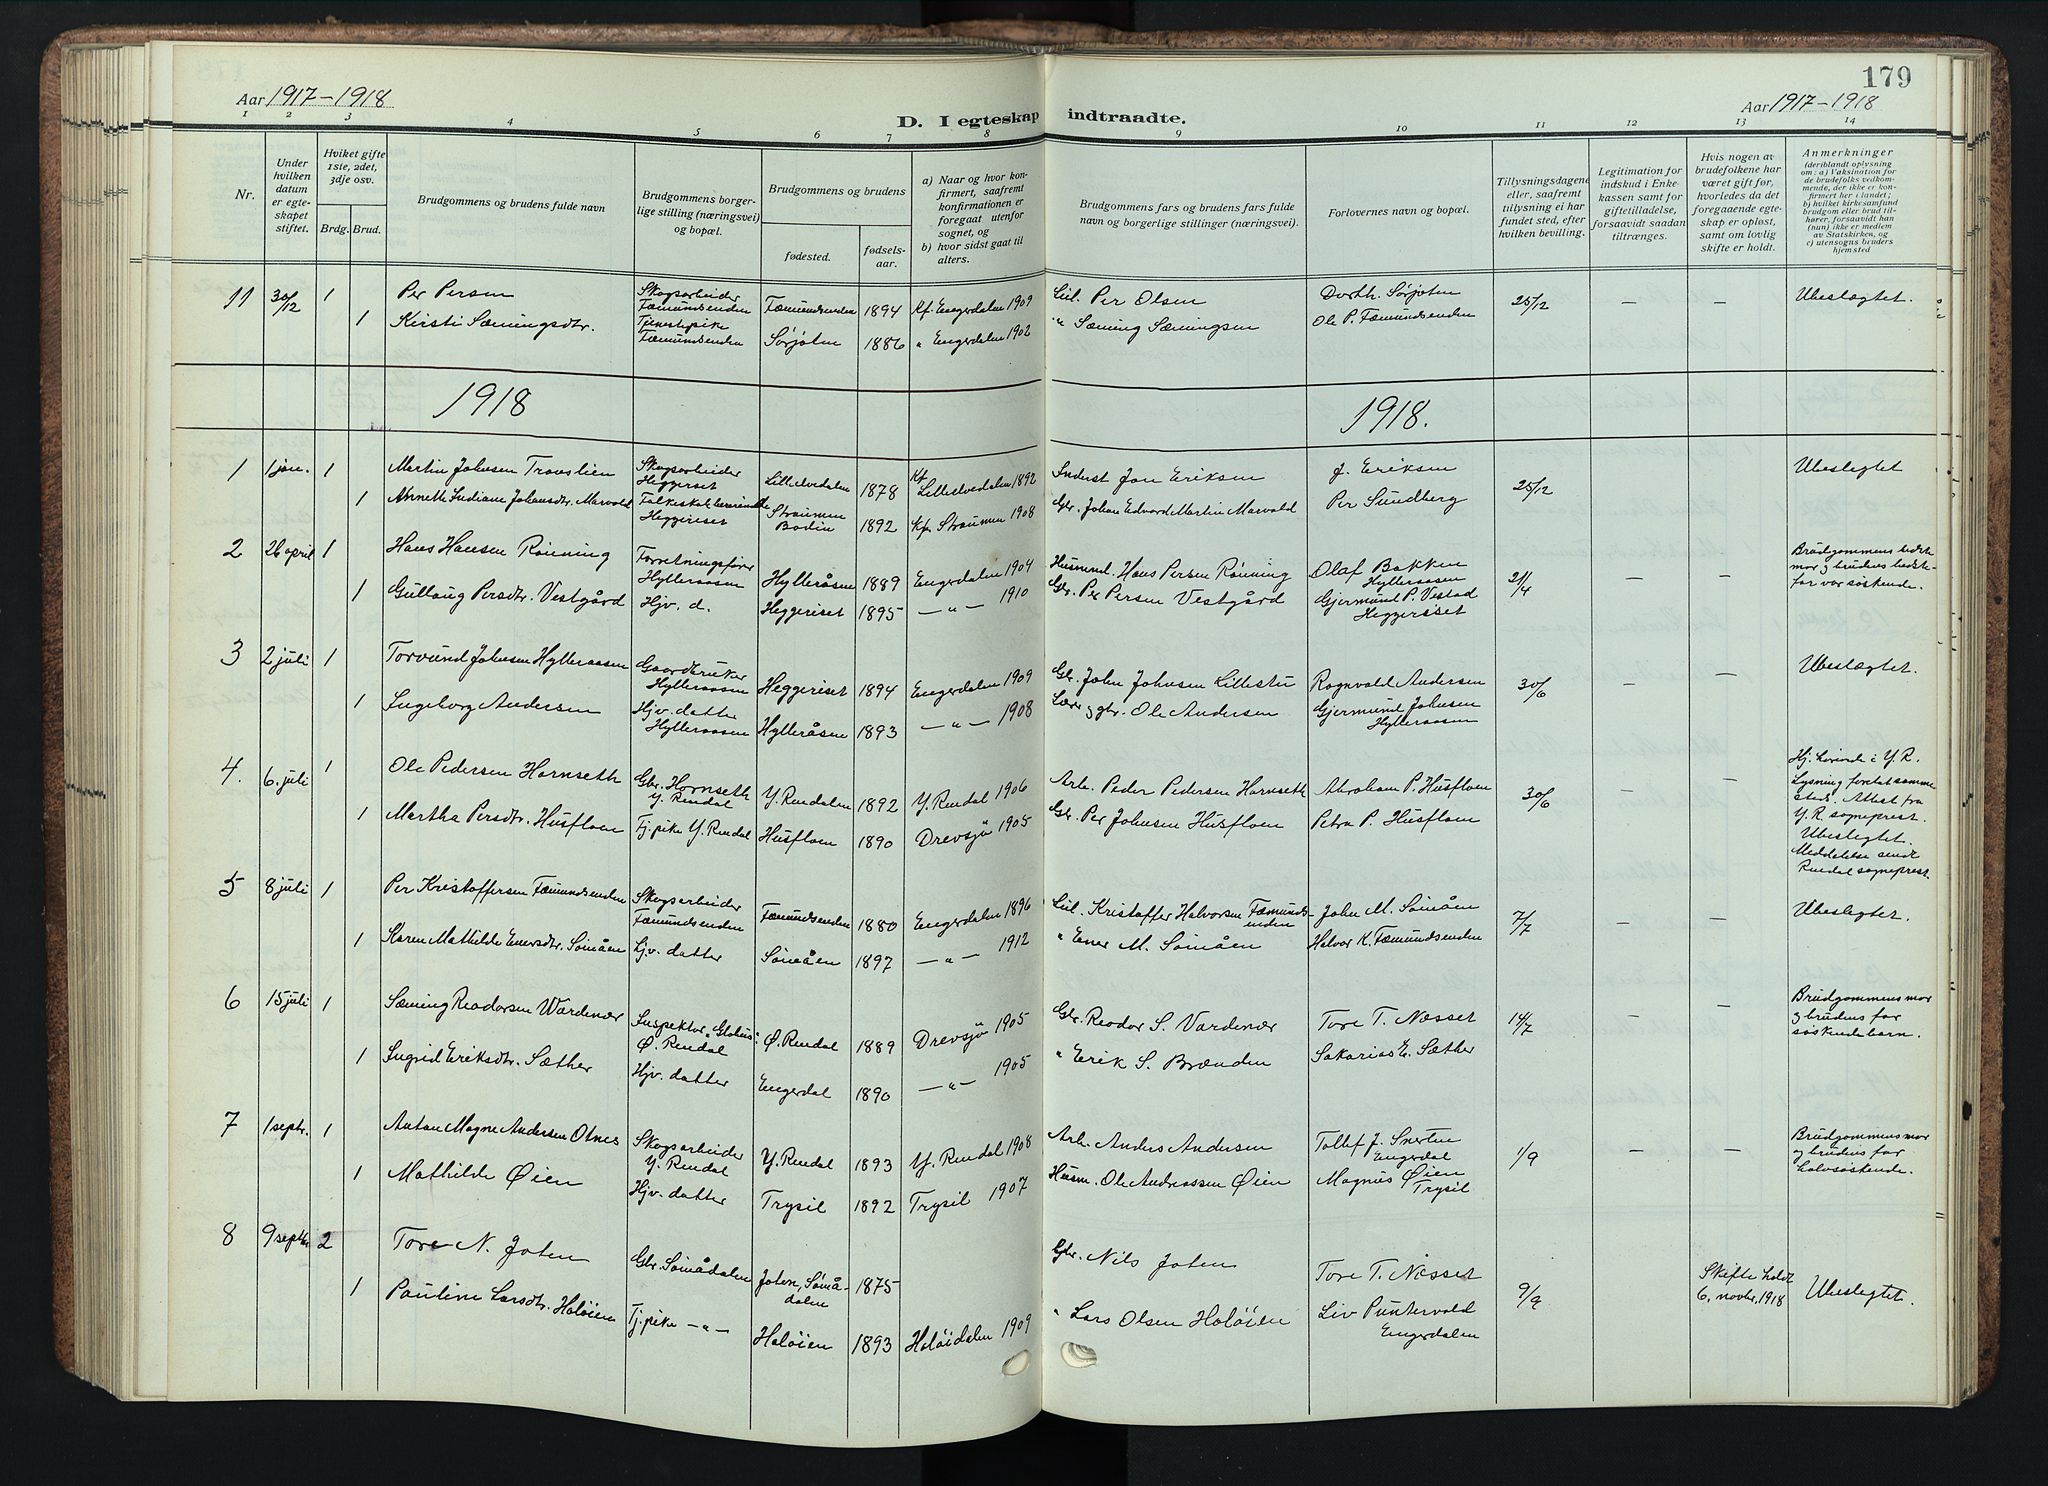 179
Aar 1917-1918
D. I egteskap indtraadte.
Aar 1917-1918
1 2 3 4 5 6 7 8 9 10 11 12 13 14
Nr.
Under hvilken datum er egteskapet stiftet.
Hviket gifte 1ste, 2det, 3dje osv.
Brdg. Brud.
Brudgommens og brudens fulde navn
Brudgommens borgerlige stilling (næringsvei) og bopæl.
Brudgommens og brudens
fødested.
fødselsaar.
a) Naar og hvor konfirmert, saafremt konfirmationen er foregaat utenfor sognet, og
b) hvor sidst gaat til alters.
Brudgommens fars og brudens fars fulde navn og borgerlige stillinger (næringsvei).
Forlovernes navn og bopæl.
Tillysningsdagene eller, saafremt tillysning ei har fundet sted, efter hvilken bevilling.
Legitimation for indskud i Enkekassen samt for giftetilladelse, forsaavidt saadan tiltrænges.
Hvis nogen av brudefolkene har været gift før, hvorledes da det foregaaende egteskap er opløst, samt om lovlig skifte er holdt.
Anmerkninger
(deriblandt oplysning om: a) Vaksination for de brudefolks vedkommende, der ikke er konfirmert her i landet; b) hvilket kirkesamfund brudgom eller brud tilhører, forsaavidt han (hun) ikke er medlem av Statskirken, og c) utensogns bruders hjemsted
11 30/12 1 Per Persen Skogsarbeider Fæmundsenden Fæmundsenden 1894 Kf. Engerdalen 1909 Per Olsen Dorth. Sørjoten 25/12 — — Ubeslægtet.
1 Kirsti Sæmingsdtr. Tjenestepike Fæmundsenden Sørjoten 1886 " Engerdalen 1902 " Sæming Sæmingsen Ole P. Fæmundsenden
1918 1918.
1 1 jan. 1 Martin Johnsen Tronslien Skogsarbeider Heggeriset Lilleelvedalen 1878 Kf. Lilleelvedalen 1892 Inderst Jon Eriksen J. Eriksen 25/12 Ubeslegtet
1 Annette Indiane Johansdtr. Marvold Heggeriset Straumen Bodin 1892 Kf. Straumen 1908 Gbr. Johan Edvard Martin Marvold Per Sundberg
2 26 april 1 Hans Hansen Rønning Forretningsfører Hylleraasen Hylleråsen 1889 Engerdalen 1904 Husmand. Hans Persen Rønning Olaf Bakken Hylleraasen 21/4 — — Brudgommens bedstemor og brudens bedstefar var søskende.
1 Gullaug Persdtr. Vestgård Hjv. d. Heggeriset 1895 — " — 1910 Gbr. Per Persen Vestgård Gjermund P. Vestad Heggeriset
3 2 juli 1 Torvund Johnsen Hylleraasen Gaardbruker Hylleraasen Heggeriset 1894 Engerdalen 1909 Gbr. John Johnsen Lillestu Ragnvald Andersen 30/6 — — Ubeslægtet.
1 Ingeborg Andersen Hjv. datter Hylleraasen Hylleråsen 1893 — " — 1908 Lærer og gbr. Ole Andersen Gjermund Johnsen Hylleraasen
4. 6. juli 1 Ole Pedersen Hornseth Gbr. Hornseth Y. Rendal Y. Rendalen 1892 Y. Rendal 1906 Arb. Peder Pedersen Hornseth Abraham P. Husfloen 30/6 — — Hj. hörende i Y. R. Lysning foretat sammesteds. Attest fra Y. R. sogneprest. Ubeslegtet. Meddelelse sendt Rendal sogneprest.
1 Martha Persdtr. Husfloen Tj. pike Y. Rendal Husfloen 1890 Drevsjø 1905 Gbr. Per Johnsen Husfloen Petra P. Husfloen
5 8 juli 1 Per Kristoffersen Fæmundsenden Skogsarbeider Fæmundsenden Fæmundsenden 1880 Engerdalen 1896 Kristoffer Halvorsen Fæmundsenden John M. Sømåen 7/7 — — Ubeslegtet.
1 Karen Mathilde Enersdtr. Sømåen Hjv. datter Sømåen 1897 — " — 1912 " Ener M. Sømåen Halvor K. Fæmundsenden
6 15 juli 1 Sæming Reodorsen Wardenær Inspektor "Glohus": Ø. Rendal Ø. Rendal 1889 Drevsjø 1905 Gbr. Reodor S. Vardenær Tore T. Næsset 14/7 — — Brudgommens mor og brudens far søskendebarn.
1 Ingrid Eriksdtr. Sæther Hjv. datter Engerdal 1890 — " — 1905 " Erik S. Brænden Sakarias E. Sæther
7 1 septr. 1 Anton Magne Andersen Otnes Skogsarbeider Y. Rendal Y. Rendal 1893 Y. Rendal 1908 Arb. Anders Andersen Tollef J. Snerten Engerdal 1/9 — — Brudgommens mor og brudens far halvsøskende.
1 Mathilde Øien Hjv. datter Trysil 1892 Trysil 1907 Husm. Ole Andreassen Øien Magnus Øien Trysil
8 9 septbr 2 Tore N. Joten Gbr. Sømådalen Joten, Sømådalen 1875 Gbr. Nils Joten Tore T. Næsset 9/9 Skifte holdt 6. novbr. 1918 Ubeslegtet.
1 Pauline Larsdtr. Holøien Tj. pike — " — Holøien 1893 Holøidalen 1909 " Lars Olsen Holøien Liv Puntervold Engerdalen